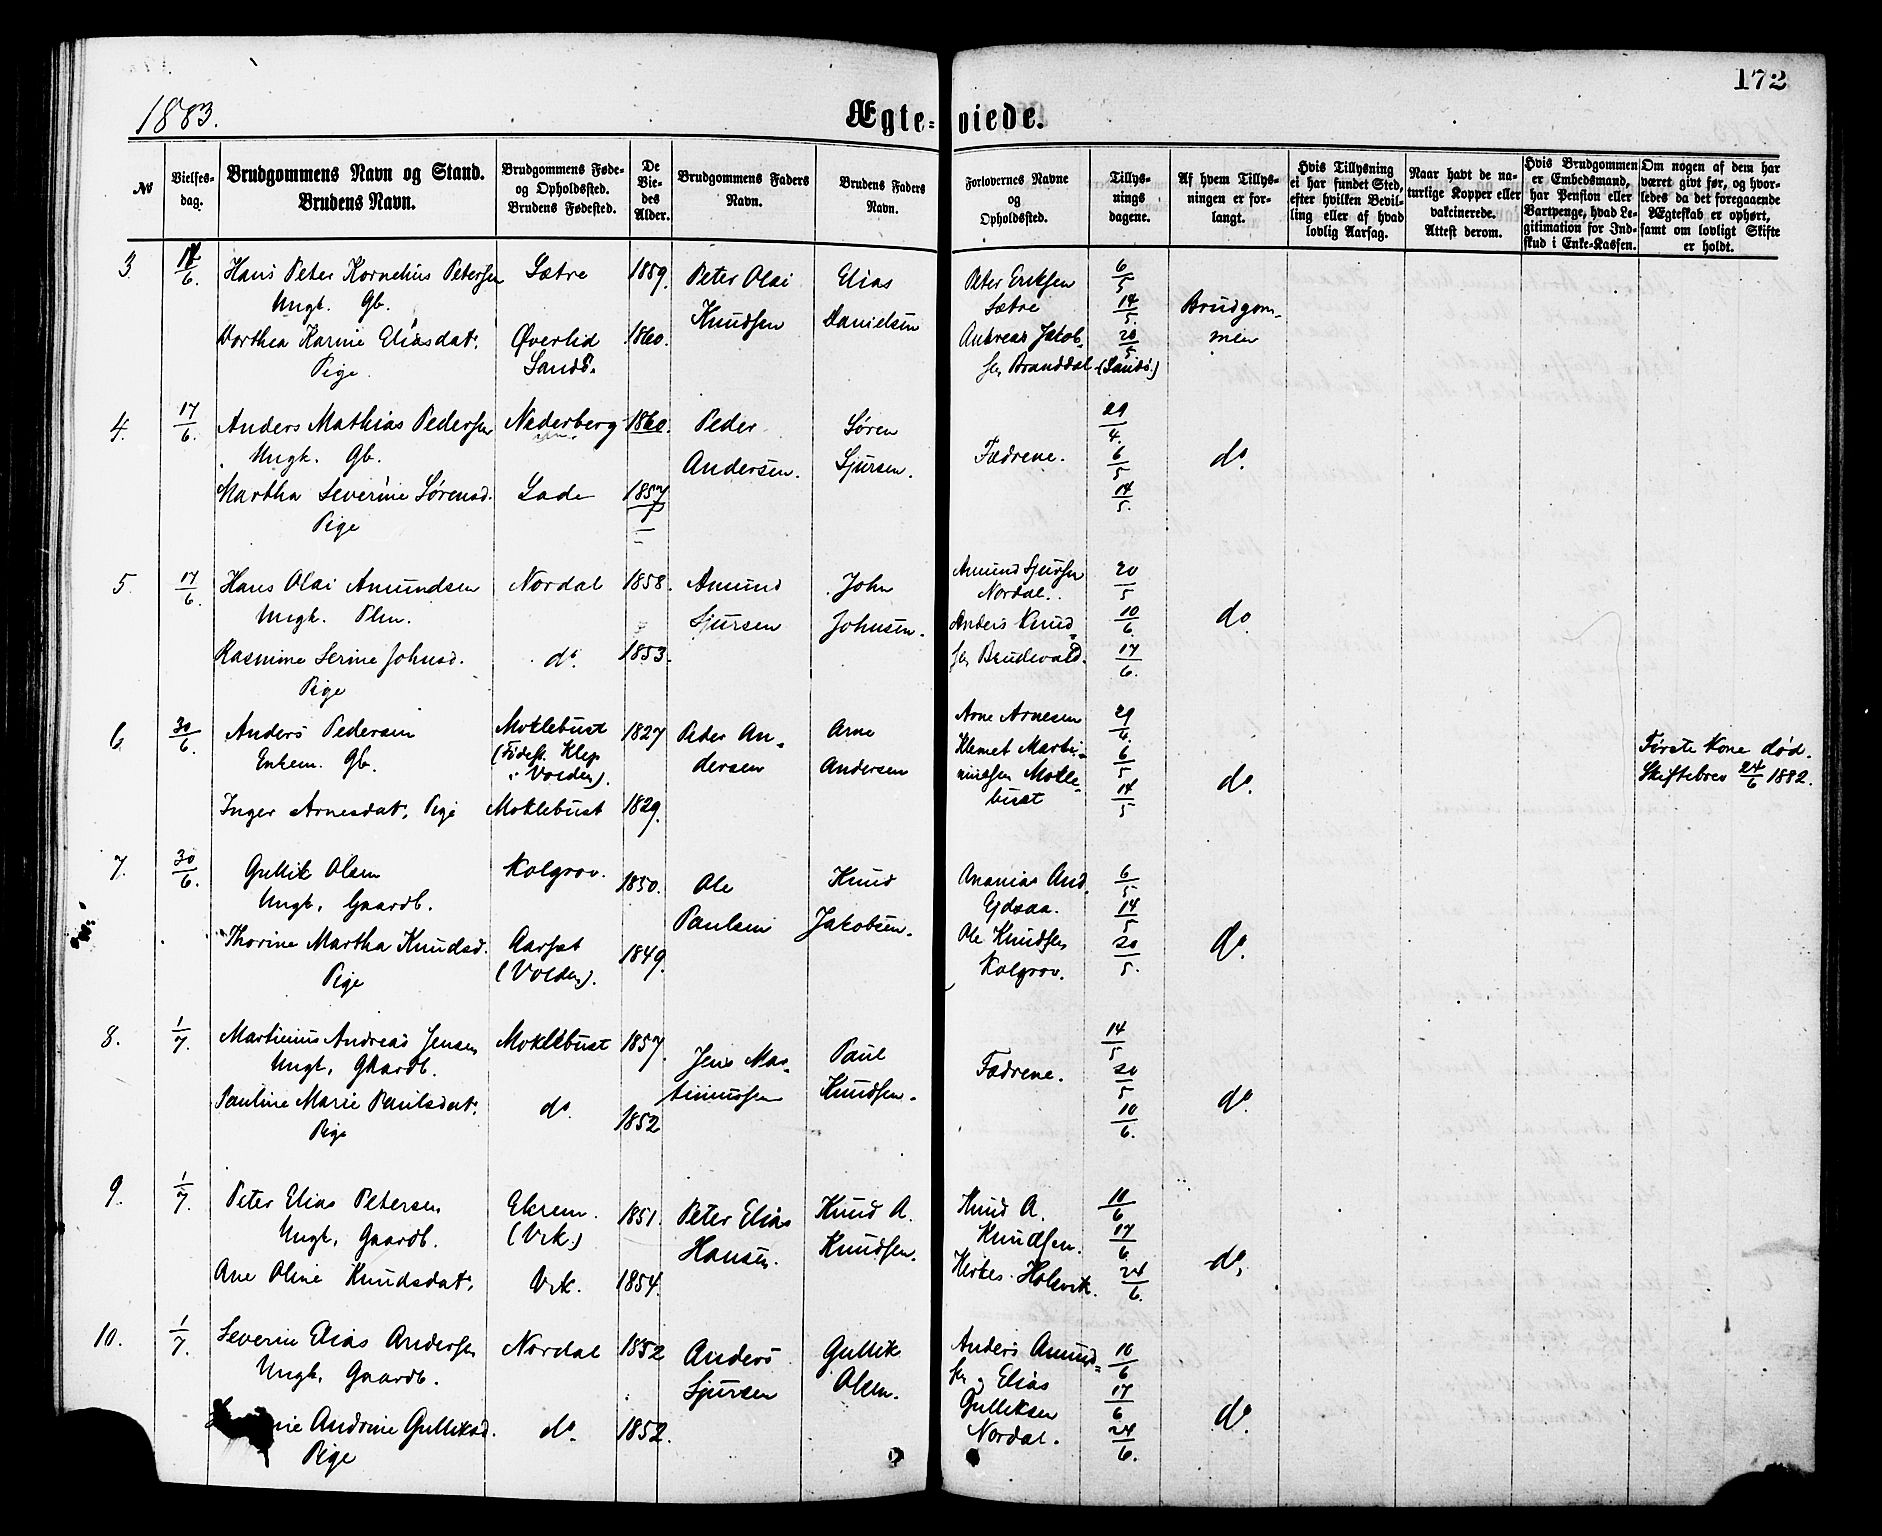 172
1883.
Ægte-viede.
№
Vielses-dag.
Brudgommens Navn og Stand.
Brudens Navn.
Brudgommens Føde-
og Opholdssted.
Brudens Fødested.
De
Vie-
des
Alder.
Brudgommens Faders
Navn.
Brudens Faders
Navn.
Forlovernes Navne
og
Opholdssted.
Tillys-
nings
dagene.
Af hvem Tillys-
ningen er for-
langt.
Hvis Tillysning
ei har fundet Sted,
efter hvilken Bevil-
ling eller af hvad
lovlig Aarsag.
Naar havt de na-
turlige Kopper eller
vakcinerede.
Attest derom.
Hvis Brudgommen
er Embedsmand,
har Pension eller
Vartpenge, hvad Le-
gitimation for Ind-
skud i Enke-Kassen.
Om nogen af dem har
været givt før, og hvor-
ledes da det foregaaende
Ægteskab er ophørt,
samt om lovligt Skifte
er holdt.
3. Hans Peter Kornelius Petersen Sætre 1859. Peter Olai Elias Peter Eriksen 6/5
Ungk. Gb. Knudsen Danielsen Sætre 14/5 Brudgom-
Dorthea Karine Eliasdat. Øverlid 1860. Andreas Jakob- 20/5 men
Pige. Sandö. sen Branddal (Sandö.)
4. 17/6. Anders Mathias Pedersen Nederberg 1860. Peder Søren 29/4.
Ungk. Gb. Andersen. Sjursen. Fædrene. 6/5 do.
Martha Severine Sørensd. Lade 1857 14/5.
Pige
5. 17/6. Hans Olai Amundsen Nordal 1858. Amund John Amund Sjursen 20/5
Ungk. Plm. Sjursen Johnsen. Nordal.
Anders Knud- 10/6. do
Rasmine Serine Johnsd. do. 1853. sen Brudevold. 17/6.
Pige
6. 30/6. Anders Pedersen Moklebust 1827 Peder An- Arne Arne Arnesen 29/6.
Enkem. Gb. (Fødest. Klep i Volden). dersen Andersen Klemet Marti- 6/5 do. Første Kone død.
ninusen Mokle- Skiftebrev 24/6 1882.
Inger Arnesdat. Pige Moklebust 1829. bust 14/5
7. 30/6. Gullik Olsen Kolgrov. 1850. Ole Knud Ananias And. 6/5
Ungk. Gaardb. Paulsen Jakobsen. Ejdsaa. 14/5
Thorine Martha Knudsd. Aarset 1849. Ole Knudsen 20/5. do.
Pige (Volden). Kolgrov.
8. 1/7. Martinius Andreas Jensen Moklebust 1857. Jens Mar- Paul 14/5
Ungk. Gaardb. tinusen Knudsen. Fædrene. 20/5 do.
Pauline Marie Paulsdat. do. 1852 10/6.
Pige
9. 1/7. Peter Elias Petersen Ekrem. 1851. Peter Elias Knud A. Knud A. 10/6
Ungk. Gaardb. (Vik.) Hansen. Knudsen. Knudsen. 17/6 do.
Ane Oline Knudsdat. Vik. 1854. Holsvik. 24/6.
10. 1/7. Severin Elias Andersen Nordal 1852 Anders Gullik Anders Amund- 10/6
Ungk. Gaardb. Sjursen Olsen. sen og Elias 17/6
Andrine Gulliksd. do. 1852. Gulliksen do.
Pige Nordal. 24/6.